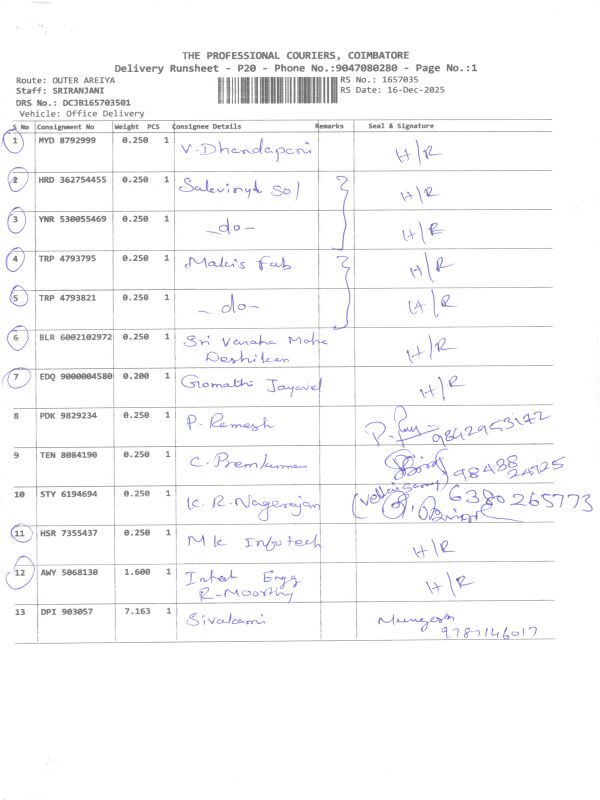 THE PROFESSIONAL COURIERS, COIMBATORE
Delivery Runsheet - P20 - Phone No.:9047080280 - Page No.:1
Route: OUTER AREIYA
RS No.: 1657035
Staff: SRIRANJANI
RS Date: 16-Dec-2025
DRS No.: DCJB165703501
Vehicle: Office Delivery
S No Consignment No Weight PCS Consignee Details Remarks Seal & Signature
1 MYD 8792999 0.250 1 V. Dhandapani H/R
2 HRD 362754455 0.250 1 Sol H/R
3 YNR 530055469 0.250 1 -do- H/R
4 TRP 4793795 0.250 1 Makis Fab H/R
5 TRP 4793821 0.250 1 -do- H/R
6 BLR 6002102972 0.250 1 Sri Varaha Maha H/R
Deshikan
7 EDQ 9000004580 0.200 1 Gomathi Jayavel H/R
8 PDK 9829234 0.250 1 P. Ramesh 9842953172
9 TEN 8084190 0.250 1 C. Premkumar 98488
24125
10 STY 6194694 0.250 1 K. R. Nagarajan 6380265773
11 HSR 7355437 0.250 1 MK Infotech H/R
12 AWY 5068130 1.600 1 Intech Engg H/R
R. Moorthy
13 DPI 903057 7.163 1 Sivakami Murugesh
9787146017